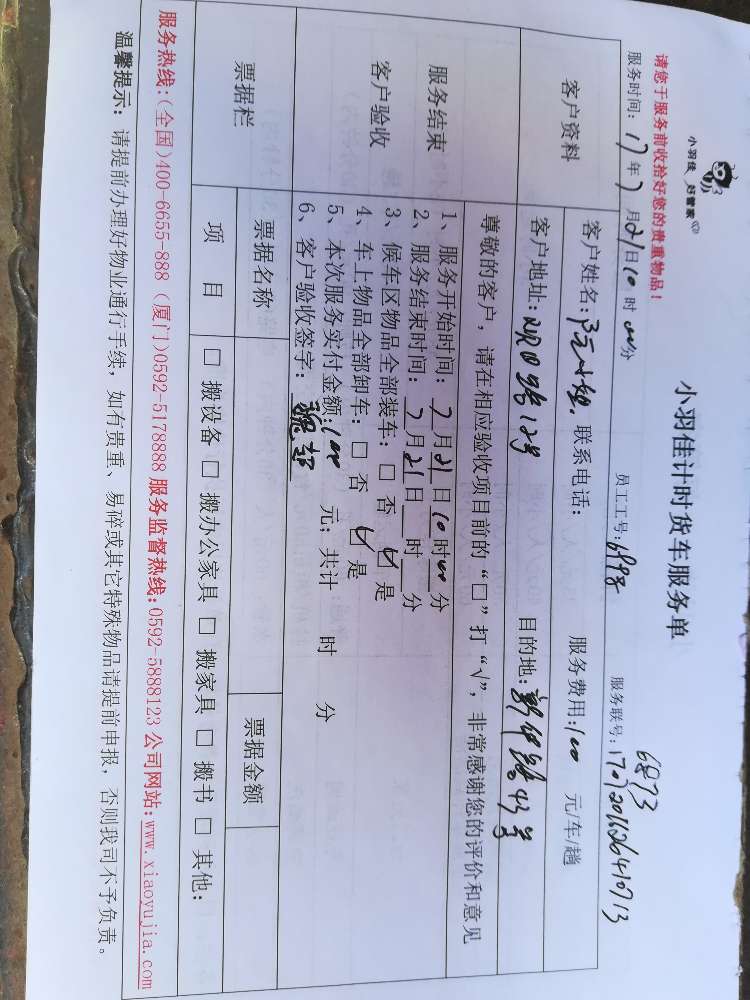 小羽佳 好管家
小羽佳计时货车服务单
请您于服务前收拾好您的贵重物品!
6873
服务时间: 17年7月21日10时00分 员工工号: 6898 服务联号: 1707201626410713
客户资料
客户姓名: 联系电话: 服务费用: 100 元/车/趟
客户地址: 路12号 目的地: 路43号
服务结束
客户验收
尊敬的客户，请在相应验收项目前的“□”打“√”，非常感谢您的评价和意见
1、服务开始时间: 7月21日10时00分
2、服务结束时间: 7月21日 时 分
3、候车区物品全部装车: □ 否 ☑ 是
4、车上物品全部卸车: □ 否 ☑ 是
5、本次服务实付金额: 100 元; 共计 时 分
6、客户验收签字: 魏超
票据栏
票据名称 票据金额
项 目 □ 搬设备 □ 搬办公家具 □ 搬家具 □ 搬书 □ 其他:
服务热线:(全国)400-6655-888 (厦门)0592-5178888 服务监督热线:0592-5888123 公司网站:www.xiaoyujia.com
温馨提示: 请提前办理好物业通行手续，如有贵重、易碎或其它特殊物品请提前申报，否则我司不予负责。